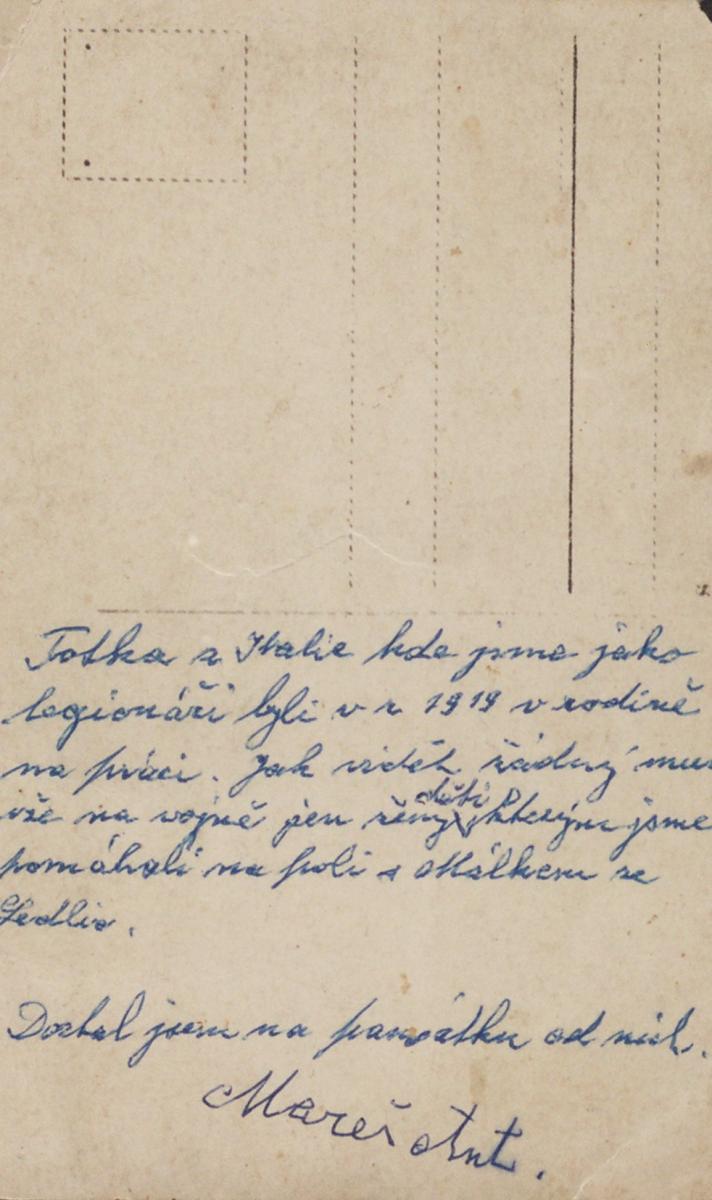 Fotka z Italie kde jsme jako
legionáři byli v r 1919 v rodině
na práci. Jak vidět žádný muž
vše na vojně jen ženy děti kterým jsme
pomáhali na poli s Málkem ze
Sedlic.
Dostal jsem na památku od nich.
Mareš Ant.